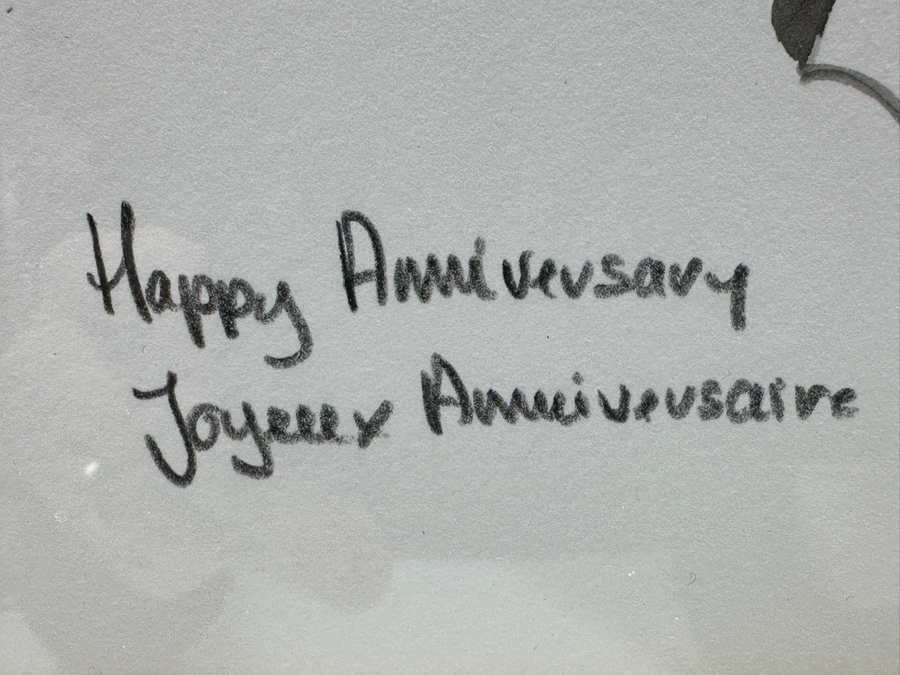 Happy Anniversary
Joyeux Anniversaire